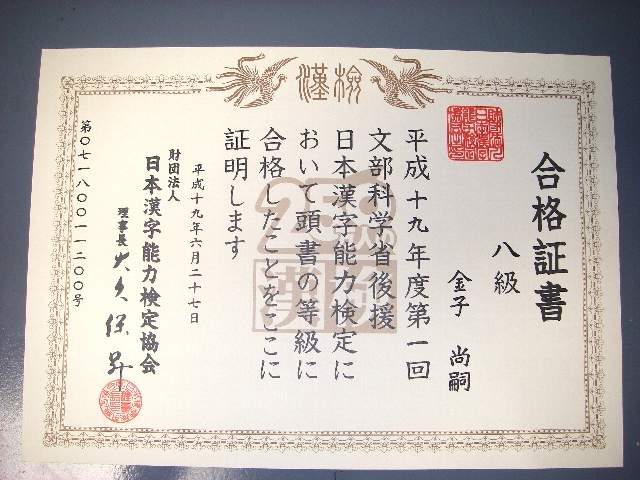 漢検
合格証書
八級
金子 尚嗣
平成十九年度第一回
文部科学省後援
日本漢字能力検定に
おいて頭書の等級に
合格したことをここに
証明します
平成十九年六月二十七日
財団法人
日本漢字能力検定協会
理事長 大久保昇
第〇七一八〇〇一一二〇〇号